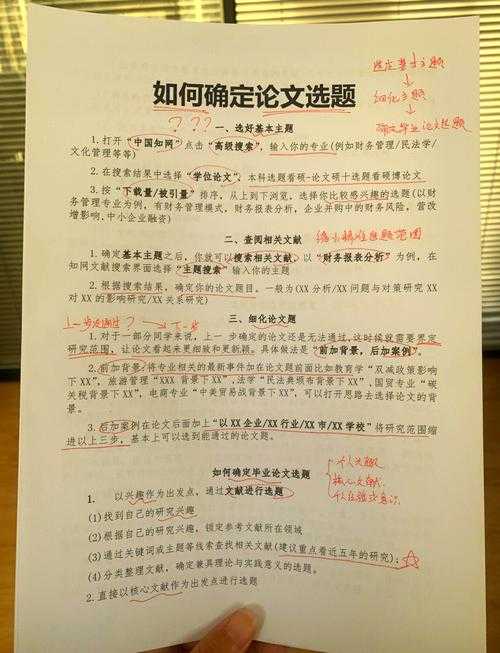 如何确定论文选题
选定基本主题
↓
细化主题
↓
确定毕业论文选题
???
一、选好基本主题
1.打开“中国知网”点击“高级搜索”，输入你的专业(例如财务管理/民法学/
文化管理等等)
2.在搜索结果中选择“学位论文”，本科选题看硕-论文硕十选题看硕博论文
3.按“下载量/被引量”排序，从上到下浏览，选择你比较感兴趣的选题(以财
务管理专业为例，有财务管理模式，财务报表分析，企业并购中的财务风险，营改
增影响.中小企业融资)
二、查阅相关文献
缩小精准选题范围
1.确定基本主题之后，你就可以搜索相关文献，以“财务报表分析”为例，在
知网文献搜索界面选择“主题搜索”输入你的主题
2.根据搜索结果，确定你的论文题目。一般为(XX分析/XX问题与对策研究XX
对XX的影响研究/XX关系研究)
三、细化论文题
上一步没通过? → 下一步
1.对于一部分同学来说，上一步确定的论文还是无法通过,这时候就需要界定
研究范围，让论文看起来更细致和更新颖。具体做法是“前加背景，后加案例”。
2.前加背景/将专业相关的最新事件加在论文题前面比如教育学“双减政策影响
下XX”，旅游管理“XXX背景下XX”,法学“民法典颁布背景下XX”,国贸专业“碳
关税背景下XX”,电商专业“中美贸易战背景下XX”，可以打开思路去选择论文的背
景。
3.后加案例在论文后面加上“以XX企业/XX行业/XX市/XX学校”将研究范围缩
进以上三步，基本上可以选到能通过的论文题。
如何确定毕业论文选题
个人兴趣
核心文献
1. 以兴趣作为出发点，通过文献进行选题
(1)找到自己的研究兴趣
(2)根据自己的研究兴趣，锁定参考文献所在领域
(3)通过关键词或主题等线索查找相关文献(建议重点看近五年的研究);
(4)分类整理文献，确定兼具理论与实践意义的选题。
2.直接以核心文献作为出发点进行选题